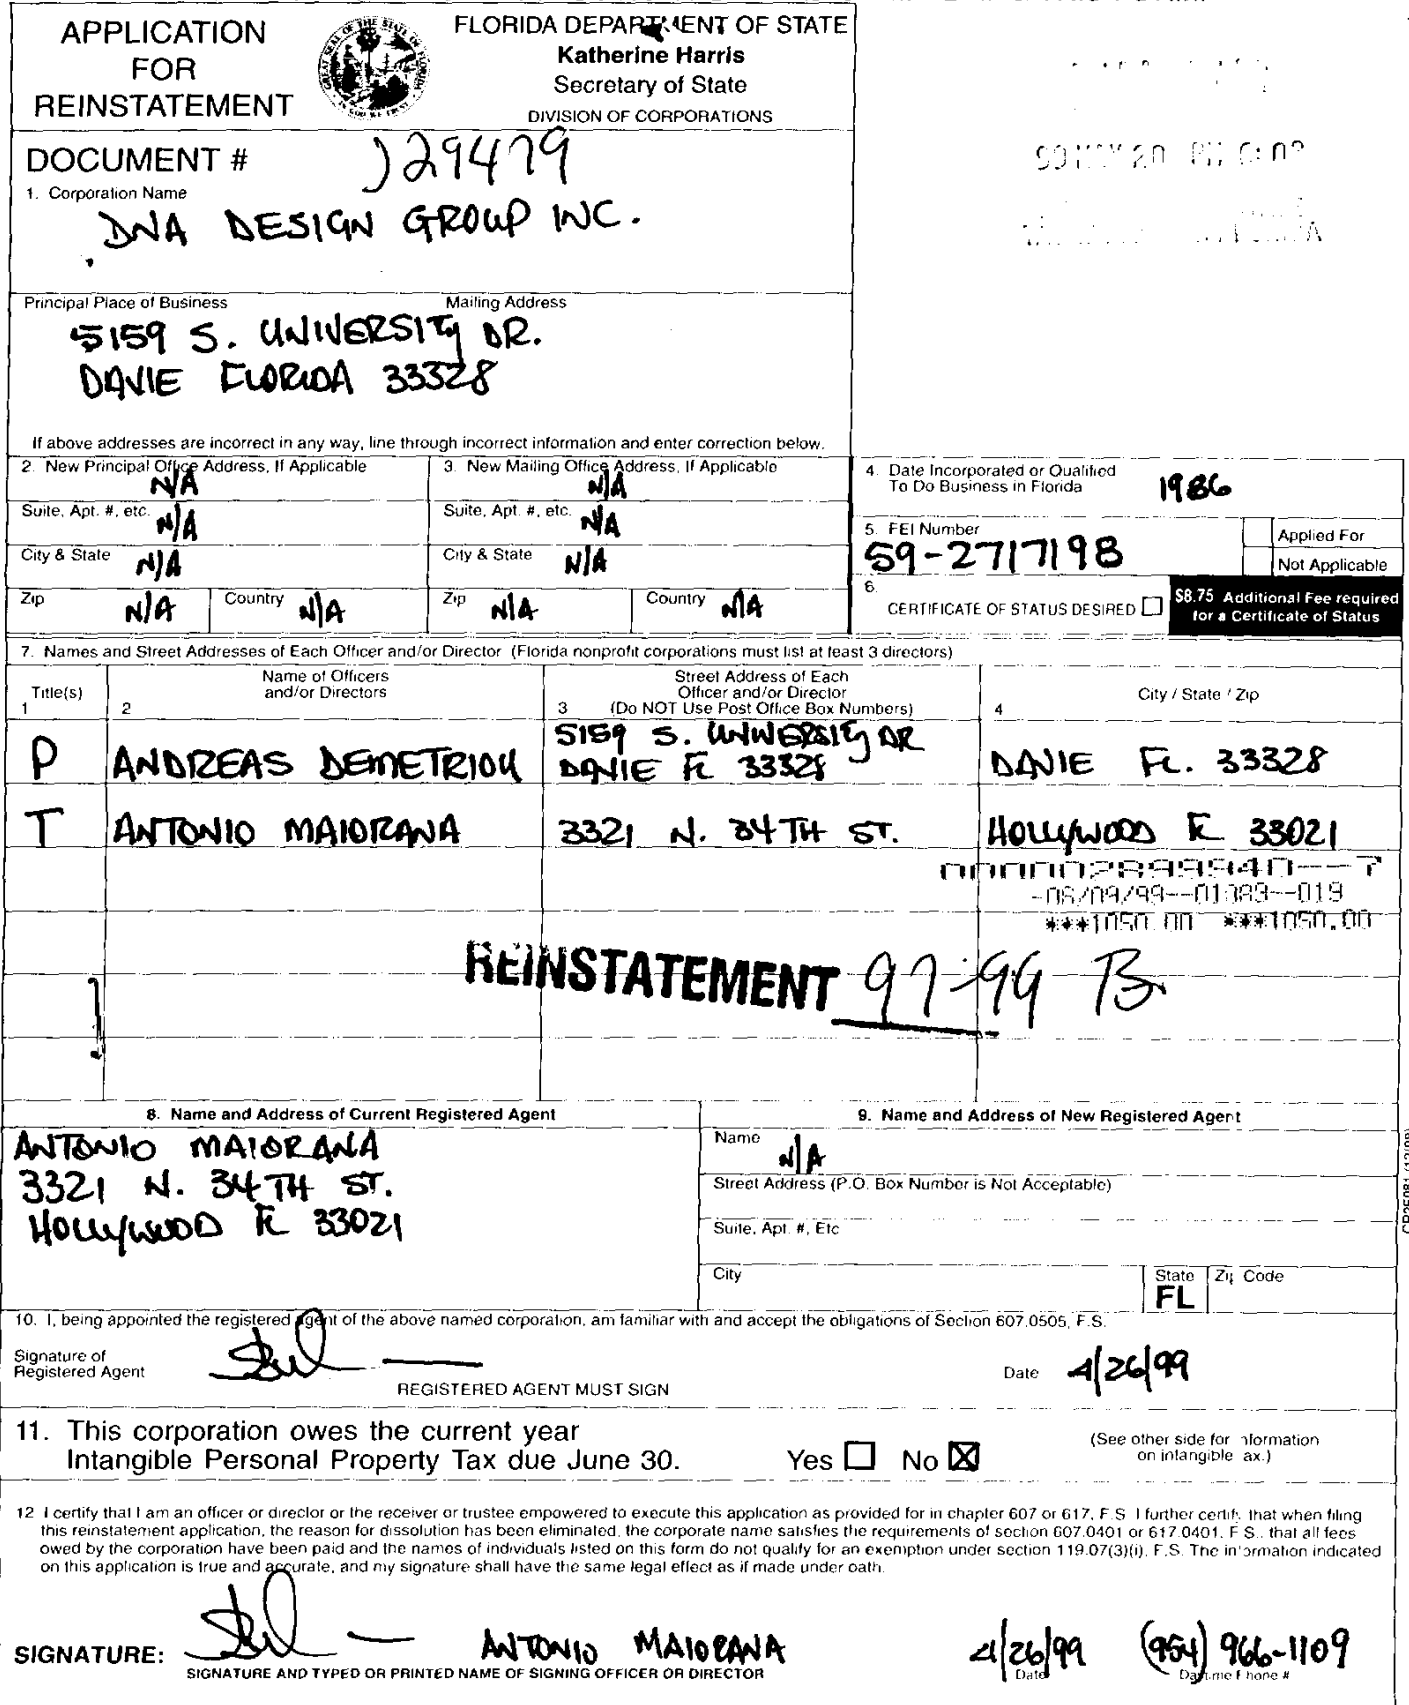 APPLICATION
FOR
REINSTATEMENT
FLORIDA DEPARTMENT OF STATE
Katherine Harris
Secretary of State
DIVISION OF CORPORATIONS
DOCUMENT # J29479
1. Corporation Name
DNA DESIGN GROUP INC.
Principal Place of Business Mailing Address
5159 S. UNIVERSITY DR.
DAVIE FLORIDA 33328
If above addresses are incorrect in any way, line through incorrect information and enter correction below.
2. New Principal Office Address, If Applicable
N/A
Suite, Apt. #, etc. N/A
City & State N/A
Zip N/A Country N/A
3. New Mailing Office Address, If Applicable
N/A
Suite, Apt. #, etc. N/A
City & State N/A
Zip N/A Country N/A
4. Date Incorporated or Qualified
To Do Business in Florida 1986
5. FEI Number
59-2717198
Applied For
Not Applicable
6.
CERTIFICATE OF STATUS DESIRED
$8.75 Additional Fee required
for a Certificate of Status
7. Names and Street Addresses of Each Officer and/or Director (Florida nonprofit corporations must list at least 3 directors)
Title(s)
1
Name of Officers
and/or Directors
2
Street Address of Each
Officer and/or Director
3 (Do NOT Use Post Office Box Numbers)
City / State / Zip
4
P ANDREAS DEMETRIOU 5159 S. UNIVERSITY DR DAVIE FL 33328 DAVIE FL. 33328
T ANTONIO MAIORANA 3321 N. 34TH ST. HOLLYWOOD FL 33021
000002899940--7
-06/09/99--01383--019
***1050.00 ***1050.00
REINSTATEMENT 97-99 B
8. Name and Address of Current Registered Agent
ANTONIO MAIORANA
3321 N. 34TH ST.
HOLLYWOOD FL 33021
9. Name and Address of New Registered Agent
Name N/A
Street Address (P.O. Box Number is Not Acceptable)
Suite, Apt. #, Etc
City
State
FL
Zip Code
10. I, being appointed the registered agent of the above named corporation, am familiar with and accept the obligations of Section 607.0505, F.S.
Signature of
Registered Agent
REGISTERED AGENT MUST SIGN
Date 4/26/99
11. This corporation owes the current year
Intangible Personal Property Tax due June 30. Yes No
(See other side for information
on intangible tax.)
12 I certify that I am an officer or director or the receiver or trustee empowered to execute this application as provided for in chapter 607 or 617, F.S. I further certify that when filing
this reinstatement application, the reason for dissolution has been eliminated, the corporate name satisfies the requirements of section 607.0401 or 617.0401, F.S., that all fees
owed by the corporation have been paid and the names of individuals listed on this form do not qualify for an exemption under section 119.07(3)(i), F.S. The information indicated
on this application is true and accurate, and my signature shall have the same legal effect as if made under oath.
SIGNATURE: ANTONIO MAIORANA 4/26/99 (954) 966-1109
SIGNATURE AND TYPED OR PRINTED NAME OF SIGNING OFFICER OR DIRECTOR
Date
Daytime Phone #